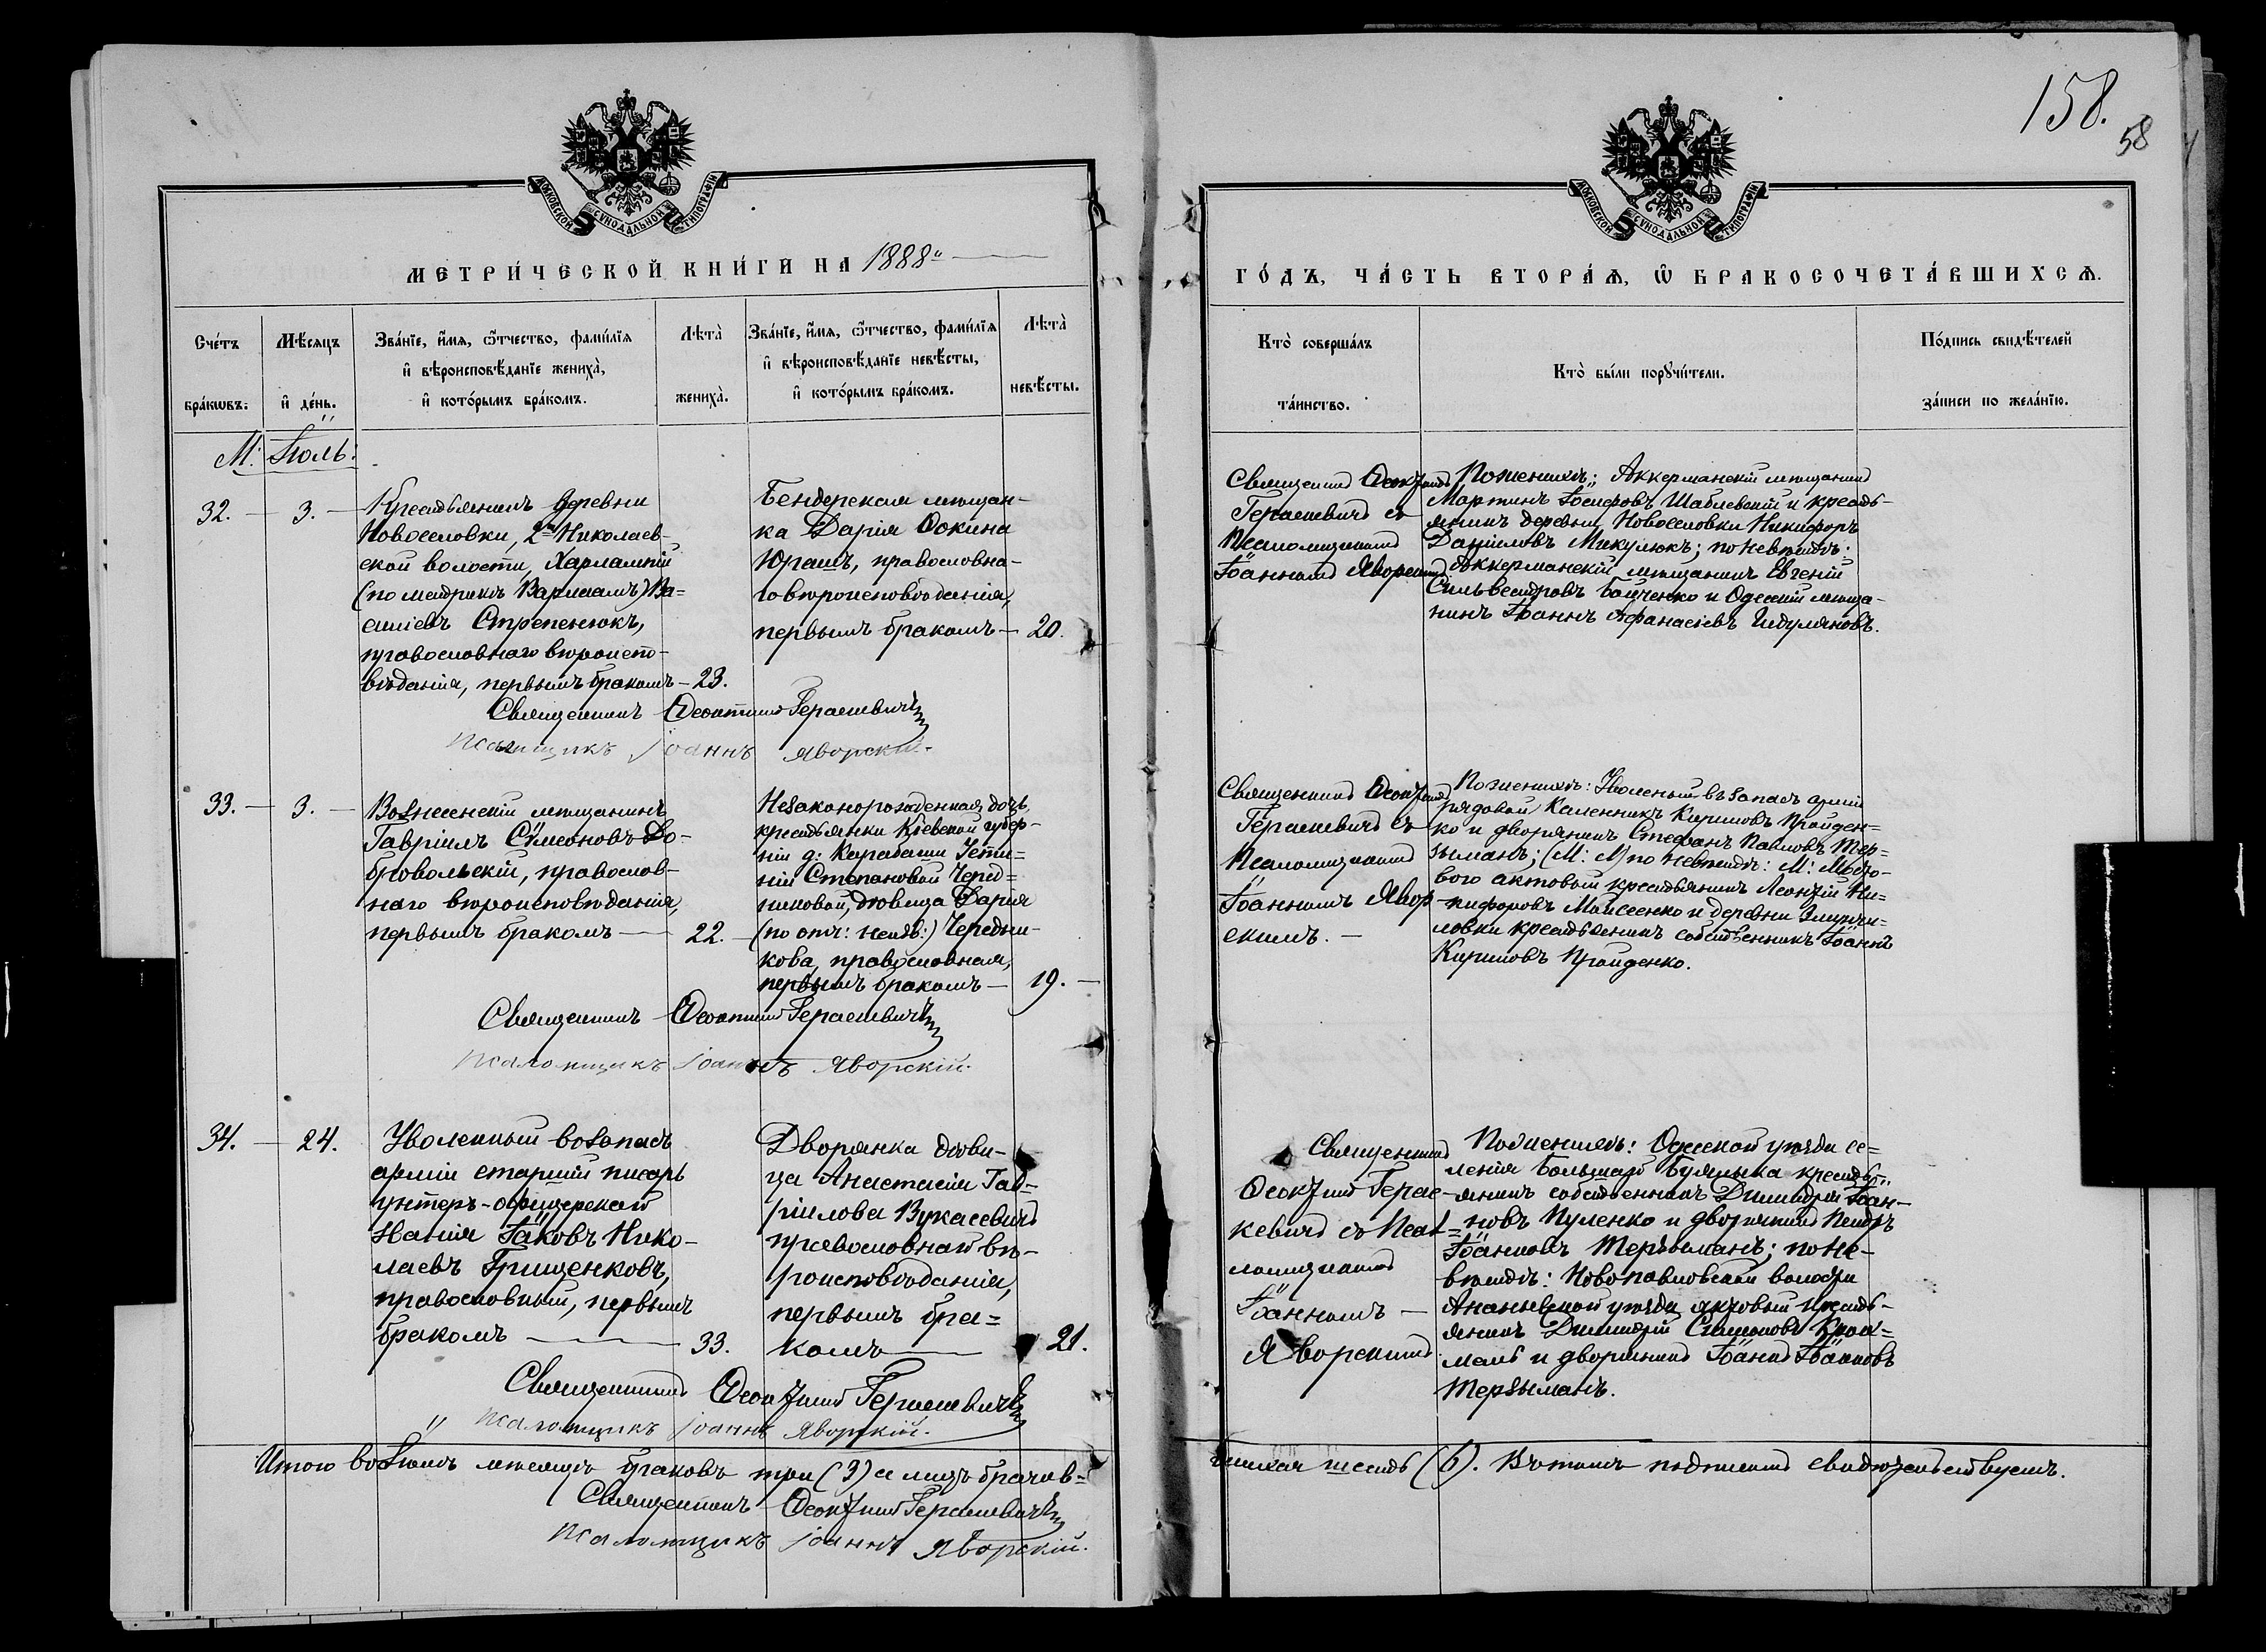 158.
58
МОСКОВСКОЙ СѴНОДАЛЬНОЙ ТИПОГРАФІИ
МОСКОВСКОЙ СѴНОДАЛЬНОЙ ТИПОГРАФІИ
МЕТРИ́ЧЕСКОЙ КНИ́ГИ НА 1888й
ГО́ДЪ, ЧА́СТЬ ВТОРА́Ѧ, Ѡ БРАКОСОЧЕТА́ВШИХСѦ.
Сче́тъ бра́кѡвъ.
Мѣ́сяцъ и҆ де́нь.
Зва́нїе, и҆́мѧ, ѻ҆́тчество, фами́лїѧ
и҆ вѣроисповѣ́данїе жениха̀,
и҆ кото́рымъ бра́комъ.
Лѣта̀ жениха̀.
Зва́нїе, и҆́мѧ, ѻ҆́тчество, фами́лїѧ
и҆ вѣроисповѣ́данїе невѣ́сты,
и҆ кото́рымъ бра́комъ.
Лѣта̀ невѣ́сты.
Кто̀ соверша́лъ
та́инство.
Кто̀ бы́ли порꙋчи́тели.
По́дпись свидѣ́телей
за́писи по жела́нїю.
М: Іюль:
32. — 3. —
Крестьянинъ деревни
Новоселовки, 2й Николаев-
ской волости, Харлампій
(по метрикѣ Варлаамъ) Ва=
силіевъ Стрепенюкъ,
православнаго вѣроиспо-
вѣданія, первымъ бракомъ — 23.
Бендерская мѣщан-
ка Дарія Ѳокина
Юрашъ, православна-
го вѣроисповѣданія,
первымъ бракомъ — 20.
Священникъ Ѳеоктистъ
Гераскевичъ съ
Псаломщикомъ
Іоанномъ Яворскимъ
По женихѣ: Аккерманскій мѣщанинъ
Мартинъ Іосифовъ Шаблевскій и кресть-
янинъ деревни Новоселовки Никифоръ
Даніиловъ Микулюкъ; по невѣстѣ:
Аккерманскій мѣщанинъ Евгеній
Сильвестровъ Бойченко и Одесскій мѣща-
нинъ Іоаннъ Афанасіевъ
Священникъ Ѳеоктистъ Гераскевичъ
Псаломщикъ Іоаннъ Яворскій.
33. — 3. —
Вознесенскій мѣщанинъ
Гавріилъ Сѵмеоновъ До-
бровольскій, православ-
наго вѣроисповѣданія,
первымъ бракомъ — 22. —
Незаконорожденная дочь
крестьянки Кіевской губер-
ніи д: Карабаши
Степановой Черед=
никовой, дѣвица Дарія
(по отч: неизв:) Чередни-
кова, православная,
первымъ бракомъ — 19. —
Священникъ Ѳеоктистъ
Гераскевичъ съ
Псаломщикомъ
Іоанномъ Явор-
скимъ. —
По женихѣ: Уволеный въ запасъ арміи
рядовой Каленникъ Кириловъ Пройден=
ко и дворянинъ Стефанъ Павловъ Тер=
зыманъ; (М: М) по невѣстѣ: М:
вого актовой крестьянинъ Леонтій Ни-
кифоровъ Моисеенко и деревни
ловки крестьянинъ собственникъ Іоаннъ
Кириловъ Пройденко.
Священникъ Ѳеоктистъ Гераскевичъ
Псаломщикъ Іоаннъ Яворскій.
34. — 24.
Уволенный въ запасъ
арміи старшій писарь
унтеръ-офицерскаго
званія Іаковъ Нико-
лаевъ Грищенковъ,
православный, первымъ
бракомъ — 33.
Дворянка дѣви-
ца Анастасія Гав=
ріилова Вукасевичъ
православнаго вѣ-
роисповѣданія,
первымъ бра=
комъ — 21.
Священникъ
Ѳеоктистъ Герас-
кевичъ съ Псал=
ломщикомъ
Іоанномъ —
Яворскимъ
По женихѣ: Одесскаго уѣзда се=
ленія Большаго Буялыка кресть-
янинъ собственникъ Димитрій Іоан-
новъ Пуленко и дворянинъ Петръ
Іоанновъ Терзыманъ; по не-
вѣстѣ: Новопавловской волости
Ананьевскаго уѣзда актовый кресть-
янинъ Димитрій Симеоновъ
и дворянинъ Іоаннъ Іоанновъ
Терзыманъ.
Священникъ Ѳеоктистъ Гераскевичъ
Псаломщикъ Іоаннъ Яворскій.
Итого въ Іюлѣ мѣсяцѣ браковъ три (3) а лицъ брачив=
шихся шесть (6). Въ томъ подписомъ свидѣтельствуемъ.
Священникъ Ѳеоктистъ Гераскевичъ
Псаломщикъ Іоаннъ Яворскій.